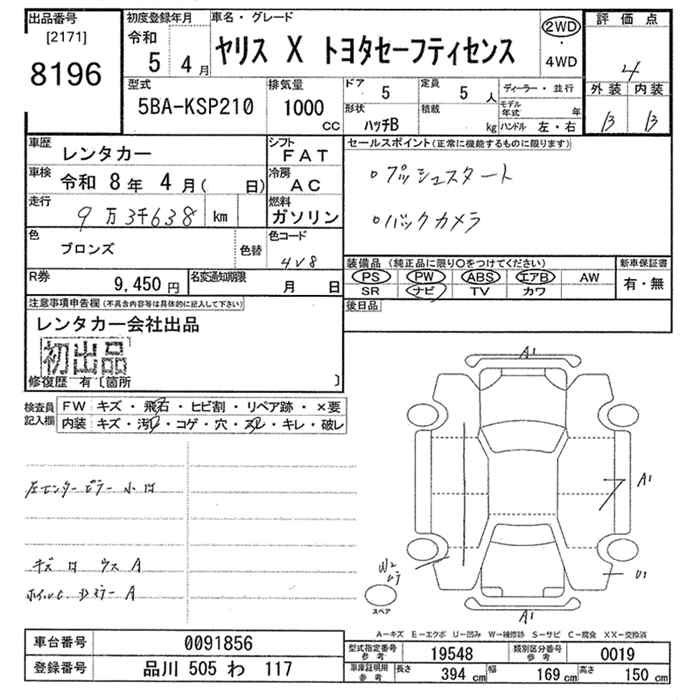 出品番号
[2171]
8196
初度登録年月
令和
5 4月
車名・グレード
ヤリス X トヨタセーフティセンス
2WD
・
4WD
評価点
4
外装 内装
B B
型式
5BA-KSP210
排気量
1000
cc
ドア
5
定員
5 人
形状
ハッチB
積載
kg
ディーラー・並行
モデル年式 年
ハンドル 左・右
車歴
レンタカー
シフト
FAT
車検
令和 8年 4月( 日)
冷房
AC
走行
9万3千638 km
燃料
ガソリン
色
ブロンズ
色替
色コード
4V8
R券
9,450 円
名変通知期限
月 日
セールスポイント(正常に機能するものに限ります)
○プッシュスタート
○バックカメラ
装備品 (純正品に限り○をつけてください)
PS PW ABS エアB AW
SR ナビ TV カワ
新車保証書
有・無
後日品
注意事項申告欄(不具合内容等は具体的に記入して下さい)
レンタカー会社出品
初出品
修復歴 有〔箇所 〕
検査員
記入欄
FW キズ・飛石・ヒビ割・リペア跡・×要
内装 キズ・汚・コゲ・穴・スレ・キレ・破レ
左センターピラー小凹
キズ凹 ウス A
A1
A1
U1
W2
スペア
A1
A-キズ E-エクボ U-凹み W-補修跡 S-サビ C-腐食 XX-交換済
車台番号 0091856
登録番号 品川 505 わ 117
型式指定番号
参考
19548
類別区分番号
参考
0019
車庫証明用
参考
長さ 394 cm
幅 169 cm
高さ 150 cm